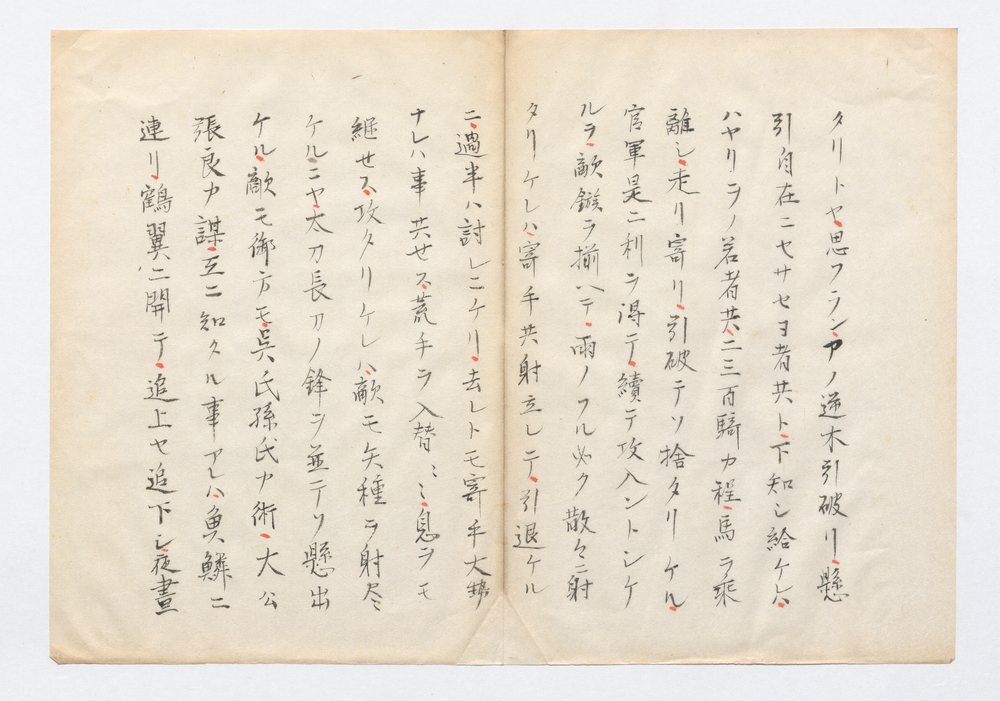 タリトヤ思フラン・アノ逆木引破リ・懸
引自在ニセサセヨ者共ト・下知シ給ケレハ・
ハヤリヲノ若者共・二三百騎カ程・馬ヲ乗
離シ・走リ寄リ・引破テソ捨タリケル・
官軍是ニ利ヲ得テ・續テ攻入ントシケ
ルヲ・敵鏃ヲ揃ヘテ・雨ノフル如ク散々ニ射
タリケレハ・寄手共射立レテ・引退ケル
ニ・過半ハ討レニケリ・去レトモ寄手大勢
ナレハ事共せス・荒手ヲ入替ミミ・息ヲモ
継せス・攻タリケレハ・敵モ矢種ヲ射尽
ケルニヤ・太刀長刀ノ鋒ヲ並テソ懸出
ケル・敵モ御方モ・呉氏孫氏カ術・大公
張良カ謀・互ニ知タル事アレハ・魚鱗ニ
連リ・鶴翼ニ開テ・追上セ追下シ夜晝